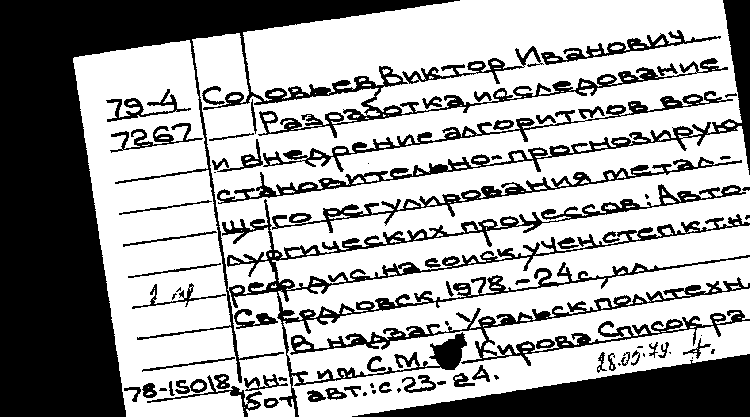 79-4 Соловьев, Виктор Иванович.
7267 Разработка, исследование
и внедрение алгоритмов вос-
становительно-прогнозирую-
щего регулирования метал-
лургических процессов: Авто-
реф. дис. на соиск. учен. степ. к.т.н.
Свердловск, 1978.-24с., ил.
В надзаг: Уральск. политехн.
78-15018 ин-т им. С.М. Кирова. Список ра
бот авт.: с. 23-24.
28.05.79.